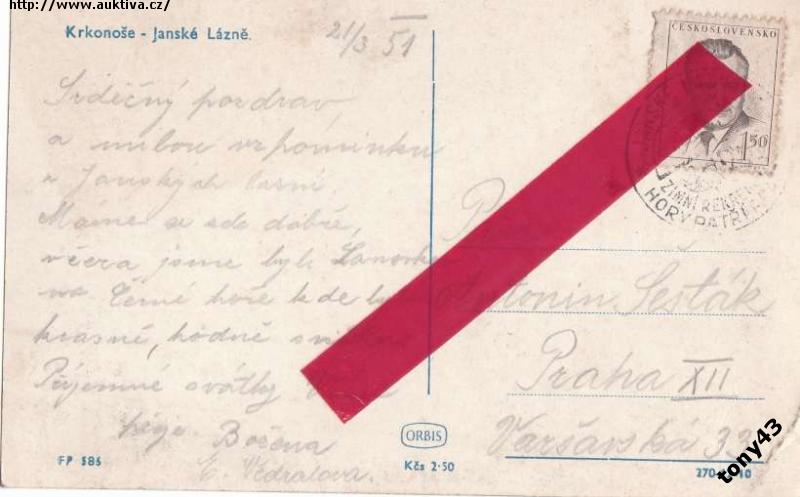 http://www.auktiva.cz/
Krkonoše - Janské Lázně.
21/3 51
Srdečný pozdrav
a milou vzpomínku
z Janských Lázní.
Máme se zde dobře,
včera jsme byli Lanovkou
na Černé hoře kde bylo
krásně, hodně
Příjemné svátky
přeje Božena
Vedralova.
FP 585
ORBIS
Kčs 2·50
ČESKOSLOVENSKO
1.50
ZIMNÍ
HORY PATŘÍ
Antonin Šesták
Praha XII
Varšavská 33
270
10
tony43